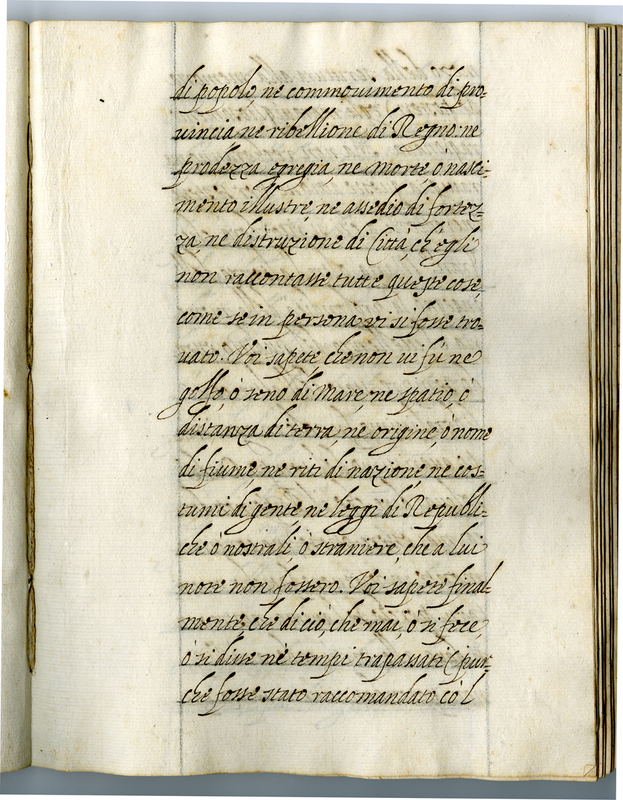 di popolo, ne commouimento di pro-
uincia, ne ribellione di Regno: ne
prodezza egregia, ne morte, ò nasci-
mento illustre, ne assedio di fortez-
za, ne distruzione di Città, ch'egli
non raccontasse tutte queste cose,
come se in persona vi si fosse tro-
uato. Voi sapete, che non ui fù ne
golfo, ò seno di Mare, ne spatio, ò
distanza di terra, ne origine, ò nome
di fiume, ne riti di nazione, ne cos-
tumi di gente, ne leggi di Republi-
che ò nostrali, ò straniere, che a lui
note non fossero. Voi sapete final-
mente, che di ciò, che mai, ò si fece,
ò si disse nè tempi trapassati (pur-
che fosse stato raccomandato cò l